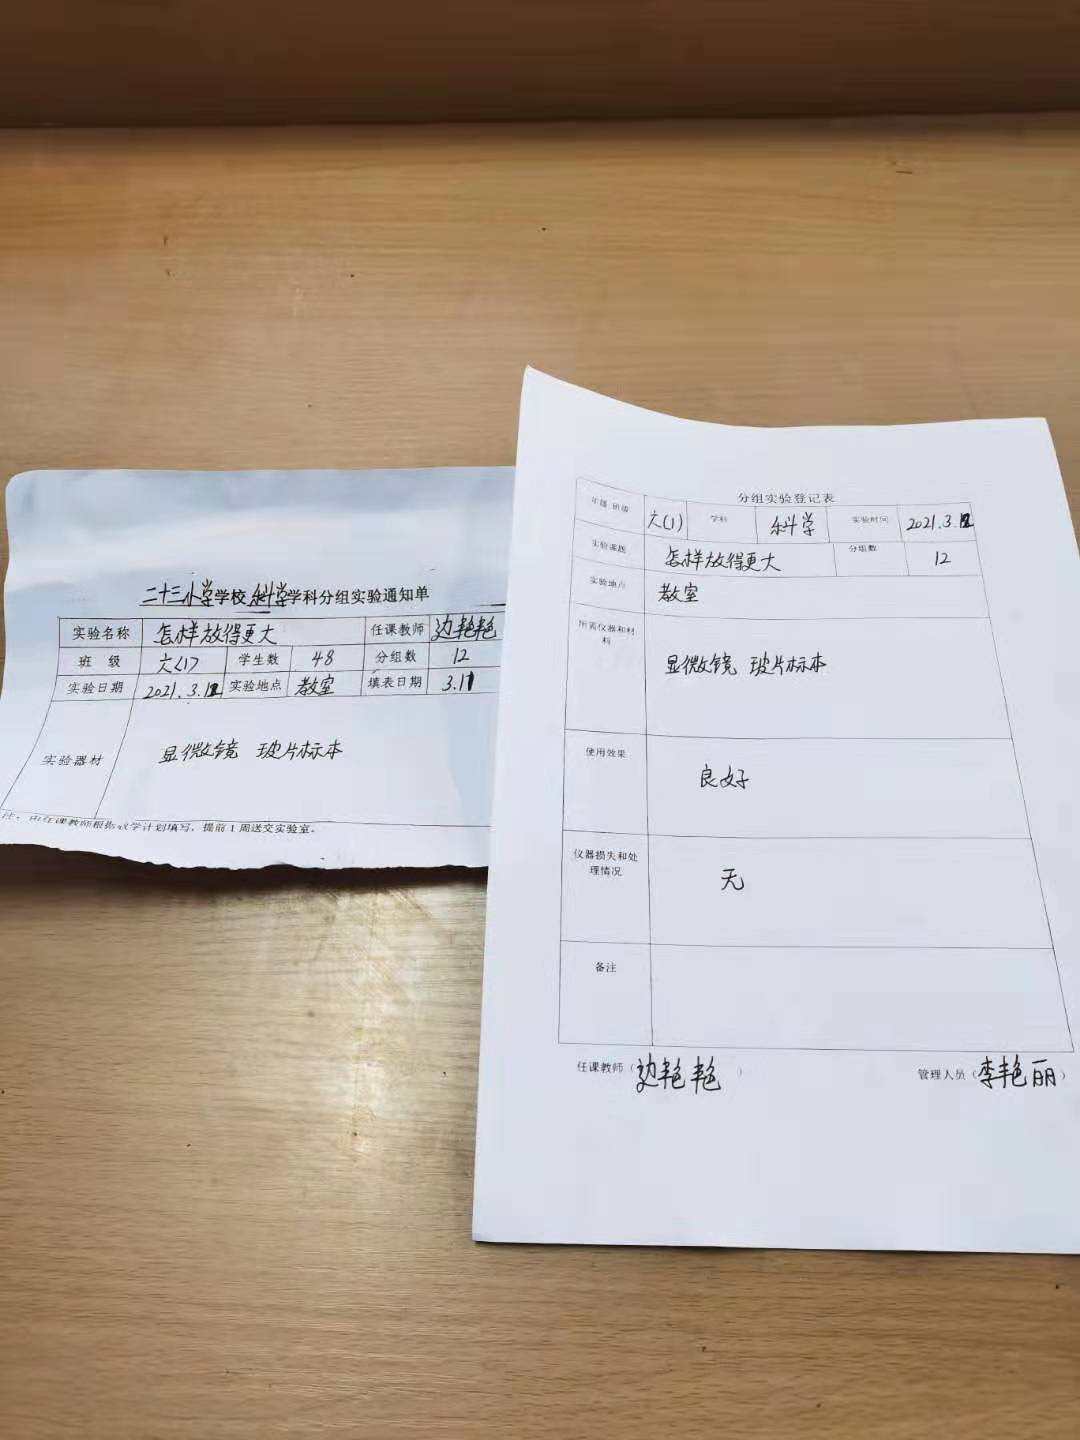 二十三小学学校科学学科分组实验通知单
实验名称 怎样放得更大 任课教师 边艳艳
班 级 六(1) 学生数 48 分组数 12
实验日期 2021.3.12 实验地点 教室 填表日期 3.11
实验器材 显微镜 玻片标本
注:由任课教师根据教学计划填写,提前1周送交实验室。
分组实验登记表
年级 班级 六(1) 学科 科学 实验时间 2021.3.12
实验课题 怎样放得更大 分组数 12
实验地点 教室
所需仪器和材
料
显微镜 玻片标本
使用效果 良好
仪器损失和处
理情况
无
备注
任课教师(边艳艳) 管理人员(李艳丽)